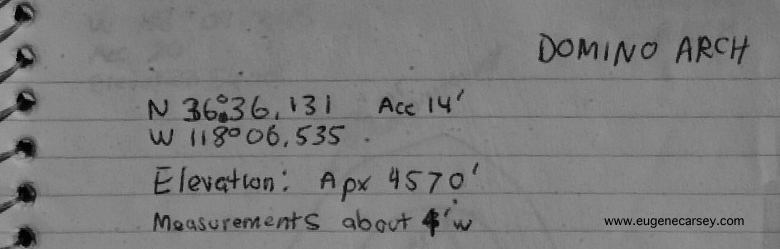 DOMINO ARCH
N 36°36,131 Acc 14'
W 118°06,535
Elevation: Apx 4570'
Measurements about 4'w
www.eugenecarsey.com